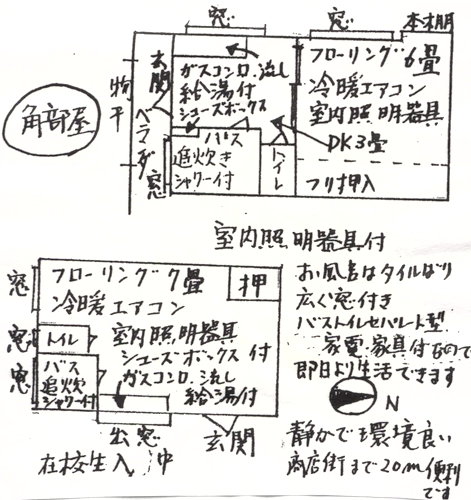 窓
窓
本棚
玄関
ガスコンロ.流し
給湯付
シューズボックス
フローリング6畳
冷暖エアコン
室内照明器具
物干
角部屋
ベランダ
窓
バス
追炊き
シャワー付
トイレ
DK3畳
押入
室内照明器具付
窓
フローリング7畳
冷暖エアコン
押
窓
トイレ
室内照明器具
シューズボックス付
窓
バス
追炊
シャワー付
ガスコンロ.流し
給湯付
出窓
玄関
在校生入
お風呂はタイルばり
広く窓付き
バストイレセパレート型
家電.家具付なので
即日より生活できます
N
静かで環境良い
商店街まで20m便利
です